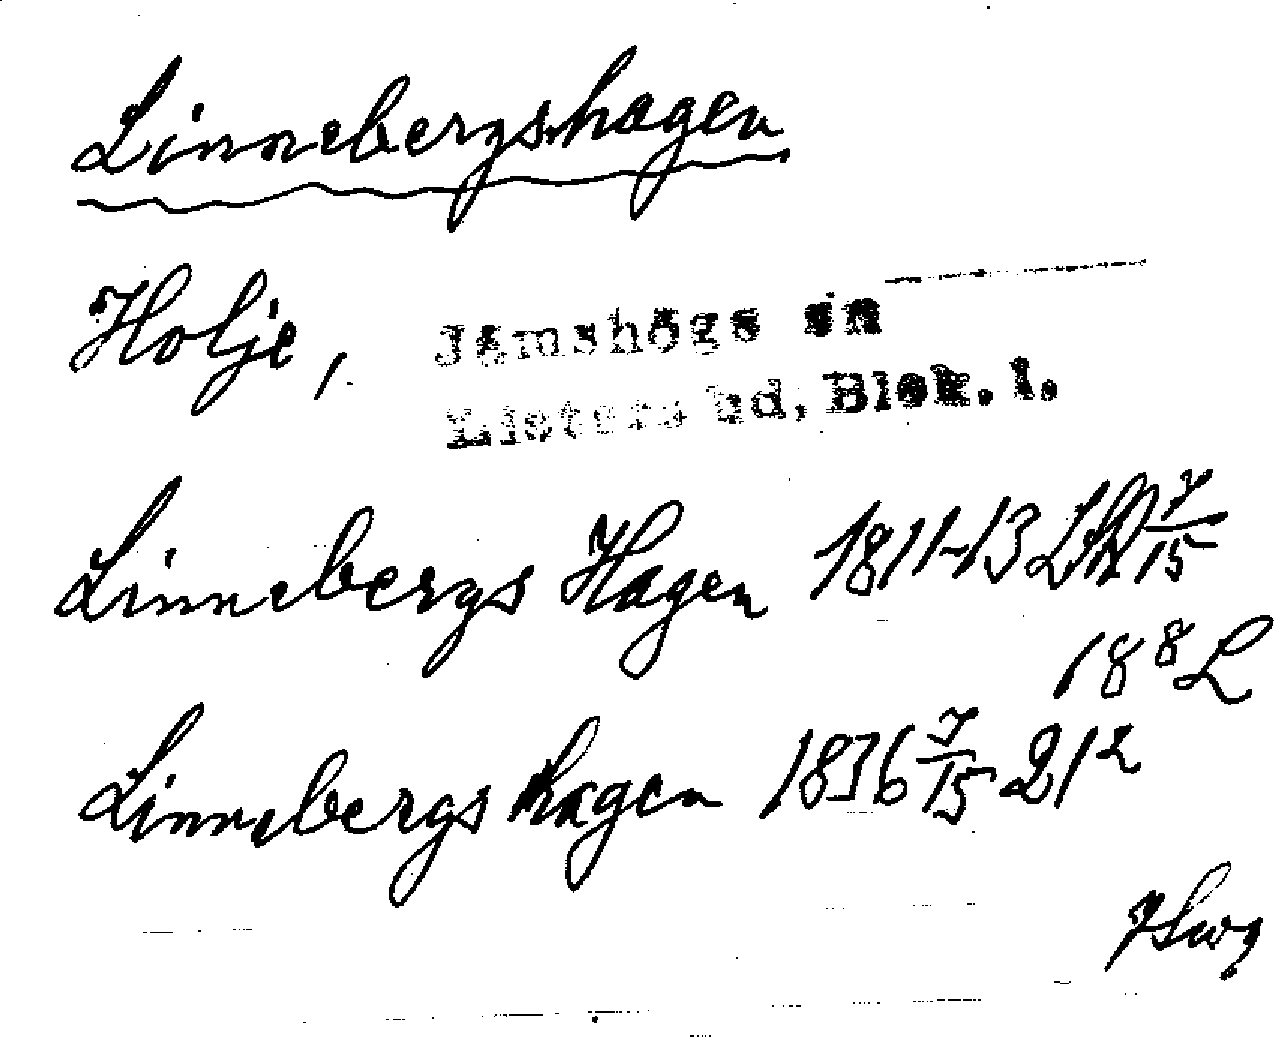 Linnebergshagen
Holje, Jämshögs sn
Listers hd, Blek. l.
Linnebergs Hagen 1811-13 LR 7/15
18⁸ L
Linnebergs hagen 1836 7/15 21²